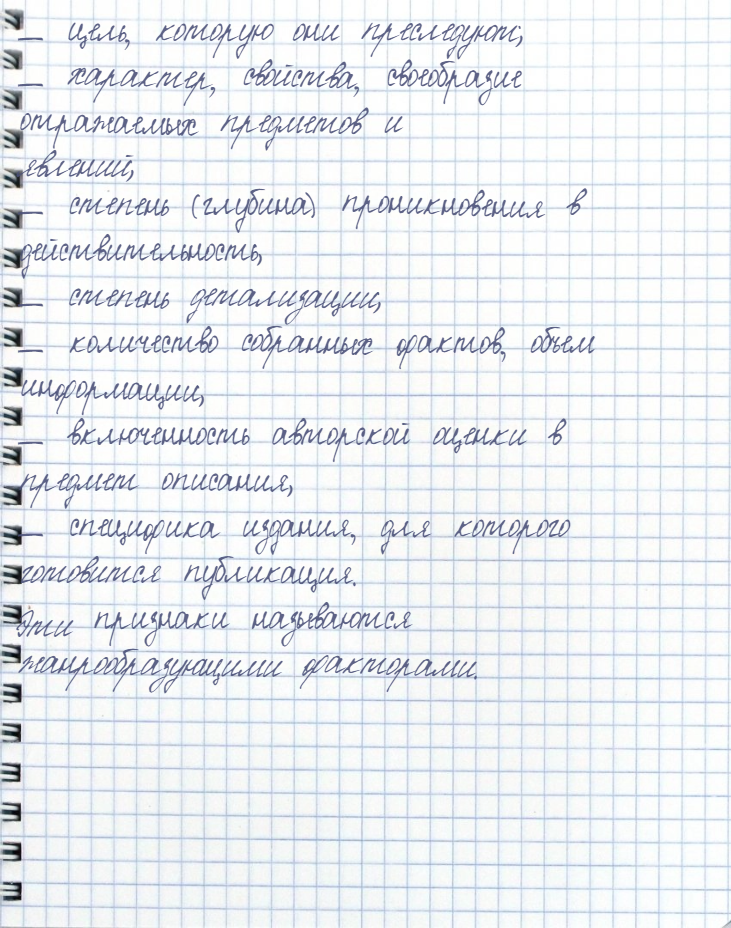 — цель, которую они преследуют;
— характер, свойства, своеобразие
отражаемых предметов и
явлений,
— степень (глубина) проникновения в
действительность,
— степень детализации,
— количество собранных фактов, объем
информации,
— включенность авторской оценки в
предмет описания,
— специфика издания, для которого
готовится публикация.
Эти признаки называются
жанрообразующими факторами.